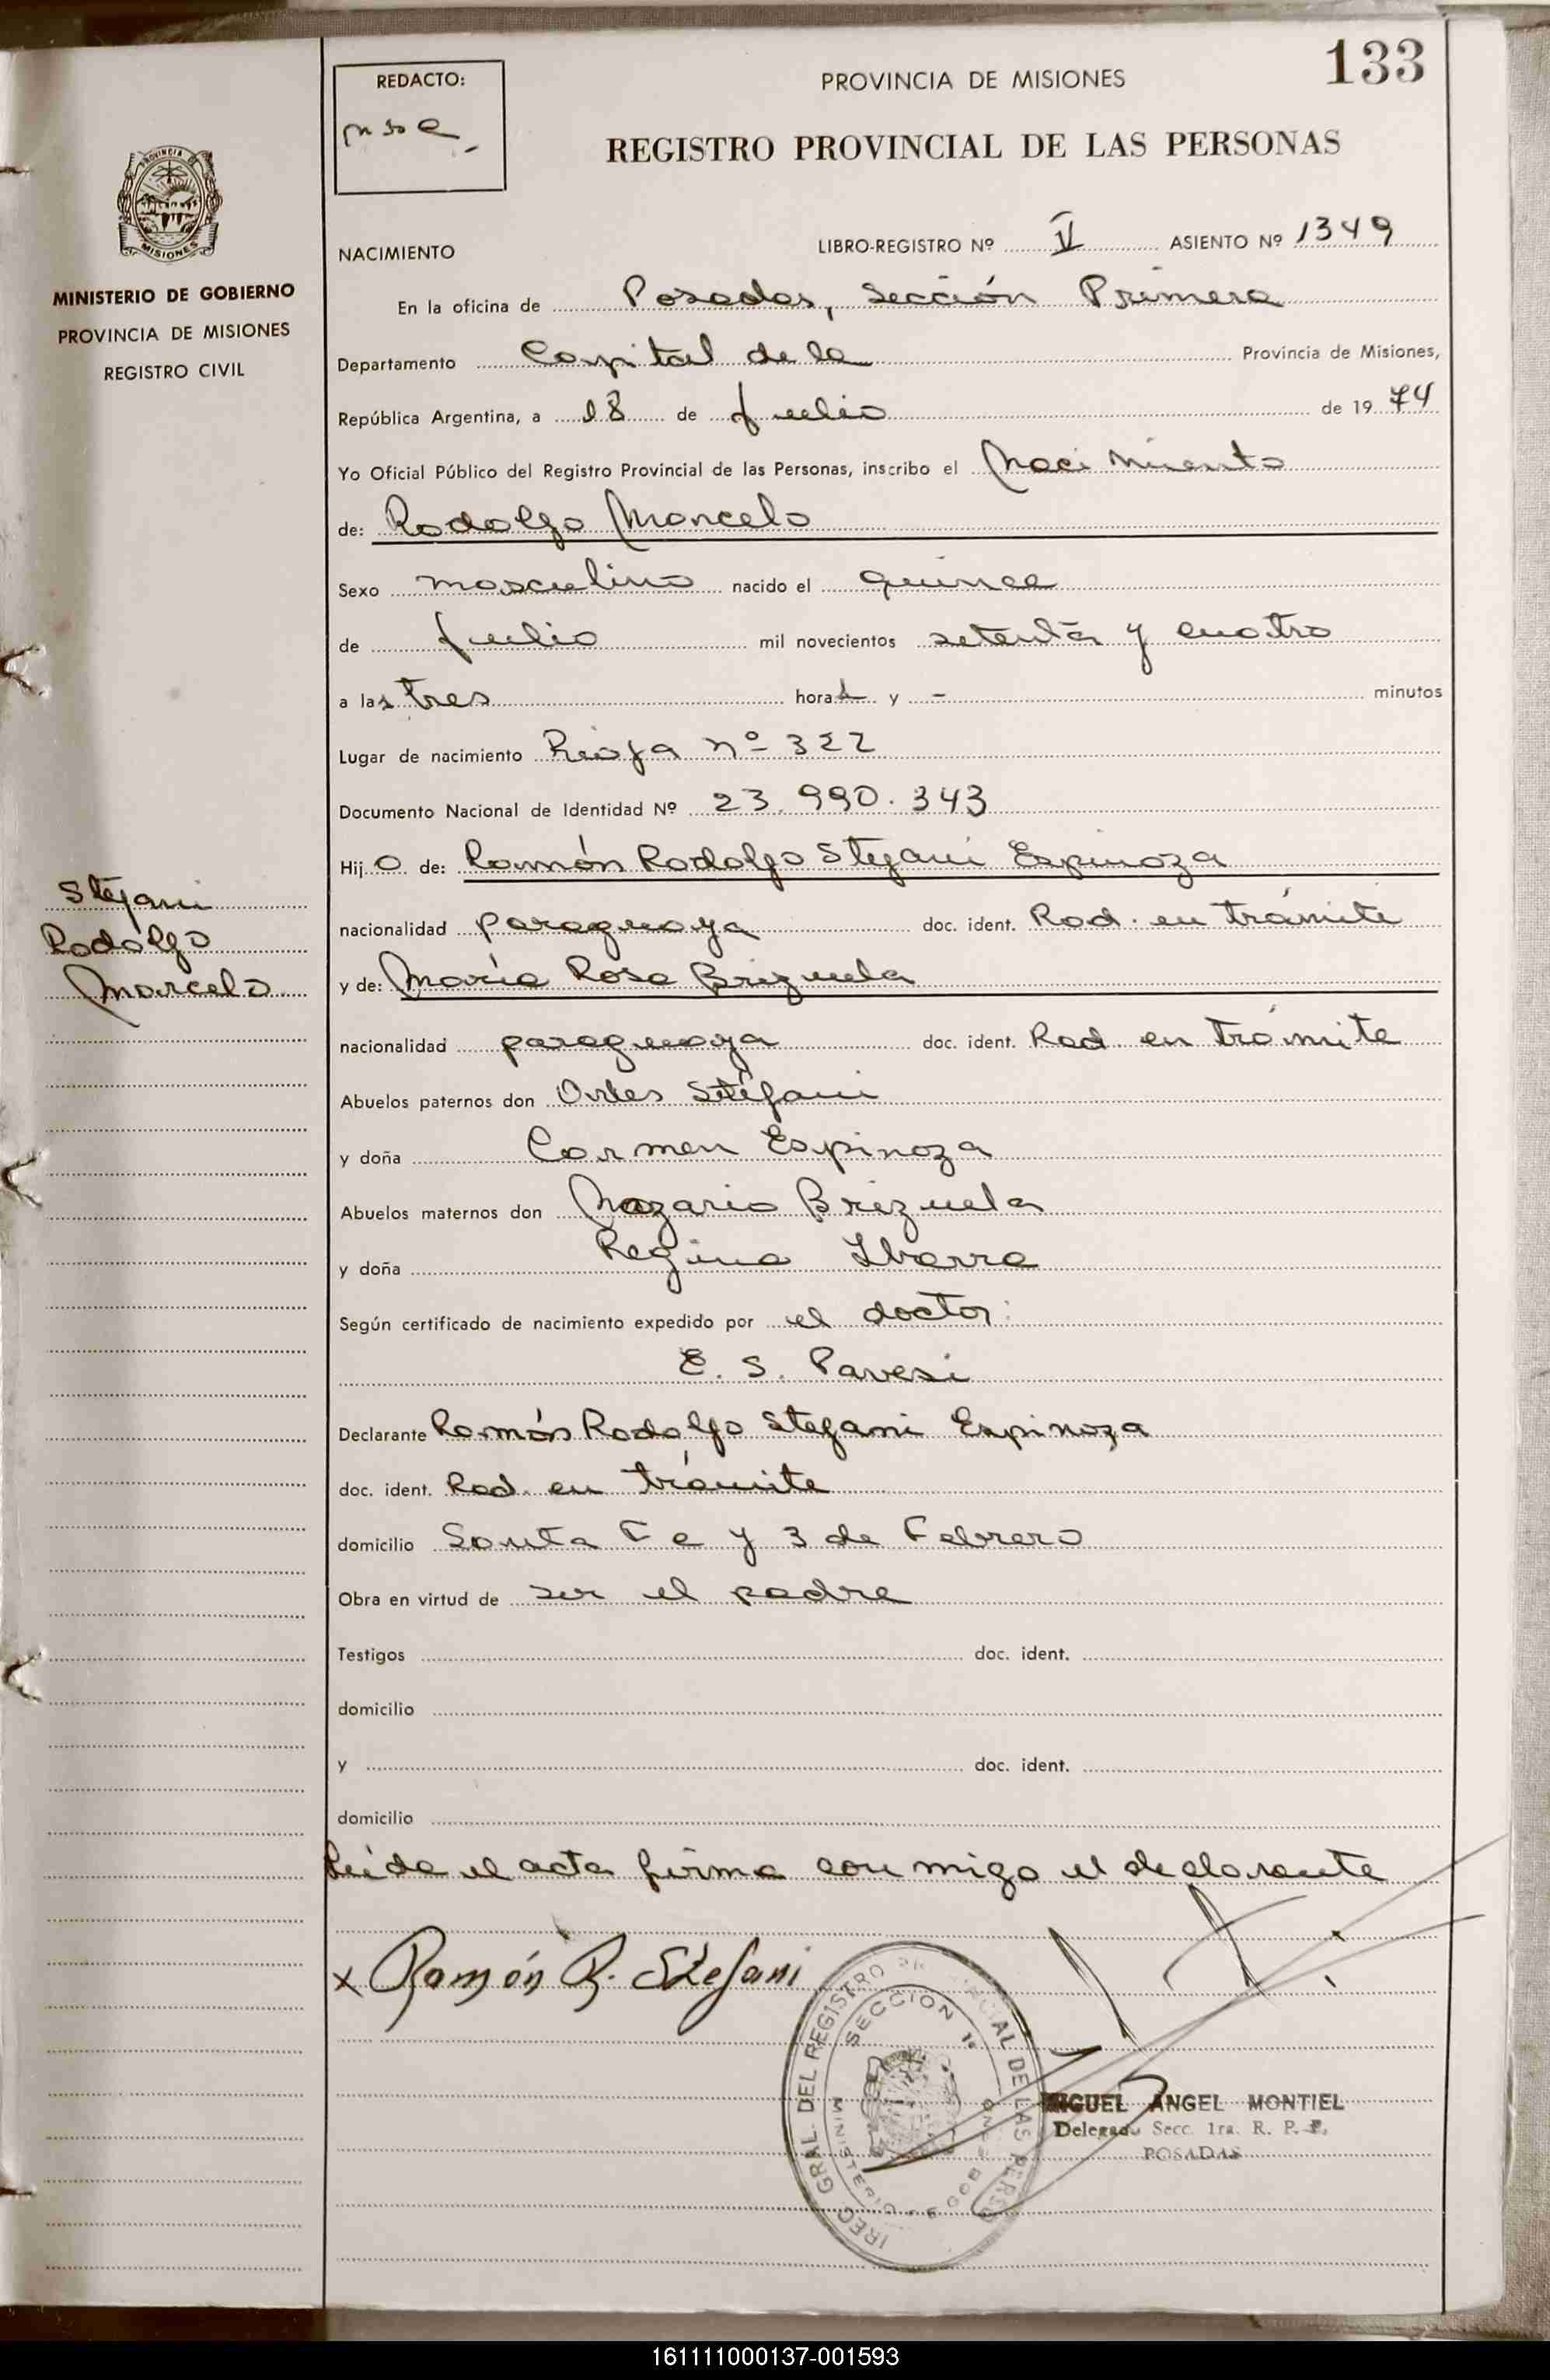 133
REDACTO:
PROVINCIA DE MISIONES
REGISTRO PROVINCIAL DE LAS PERSONAS
PROVINCIA DE
MISIONES
MINISTERIO DE GOBIERNO
PROVINCIA DE MISIONES
REGISTRO CIVIL
NACIMIENTO LIBRO-REGISTRO Nº V ASIENTO Nº 1349
En la oficina de Posadas, Sección Primera
Departamento Capital de la Provincia de Misiones,
República Argentina, a 18 de Julio de 1974
Yo Oficial Público del Registro Provincial de las Personas, inscribo el Nacimiento
de: Rodolfo Marcelo
Sexo masculino nacido el quince
de Julio mil novecientos setenta y cuatro
a las tres horas y - minutos
Lugar de nacimiento Rioja nº 322
Documento Nacional de Identidad Nº 23.990.343
Hijo de: Ramón Rodolfo Stefani Espinoza
Stefani
Rodolfo
Marcelo
nacionalidad paraguaya doc. ident. Rad. en trámite
y de: María Rosa Brizuela
nacionalidad paraguaya doc. ident. Rad en trámite
Abuelos paternos don Stéfani
y doña Carmen Espinoza
Abuelos maternos don Nazario Brizuela
y doña Regina Ibarra
Según certificado de nacimiento expedido por el doctor:
E. S. Pavesi
Declarante Ramón Rodolfo Stefani Espinoza
doc. ident. Rad. en trámite
domicilio Santa Fe y 3 de Febrero
Obra en virtud de ser el padre
Testigos doc. ident.
domicilio
y doc. ident.
domicilio
Leída el acta firma conmigo el declarante
x Ramón R. Stefani
DIREC. GRAL DEL REGISTRO PROVINCIAL DE LAS PERSO
SECCION 1ª
MINISTERIO DE GOBIERNO
MIGUEL ANGEL MONTIEL
Delegado Secc. 1ra. R. P. P.
POSADAS
161111000137-001593